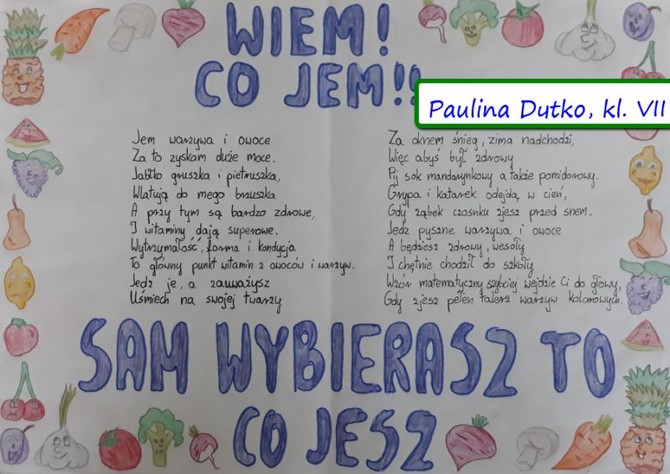 WIEM!
CO JEM!!
Paulina Dutko, kl. VII
Jem warzywa i owoce
Za to zyskam duże moce.
Jabłko gruszka i pietruszka,
Wlatują do mego brzuszka
A przy tym są bardzo zdrowe,
I witaminy dają superowe.
Wytrzymałość, forma i kondycja
To główny punkt witamin z owoców i warzyw.
Jedz je, a zauważysz
Uśmiech na swojej twarzy
Za oknem śnieg, zima nadchodzi,
Więc abyś był zdrowy
Pij sok mandarynkowy a także pomidorowy.
Grypa i katarek odejdą w cień,
Gdy ząbek czosnku zjesz przed snem.
Jedz pyszne warzywa i owoce
A będziesz zdrowy, wesoły
I chętnie chodził do szkoły
Wzór matematyczny szybciej wejdzie Ci do głowy,
Gdy zjesz pełen talerz warzyw kolorowych.
SAM WYBIERASZ TO
CO JESZ